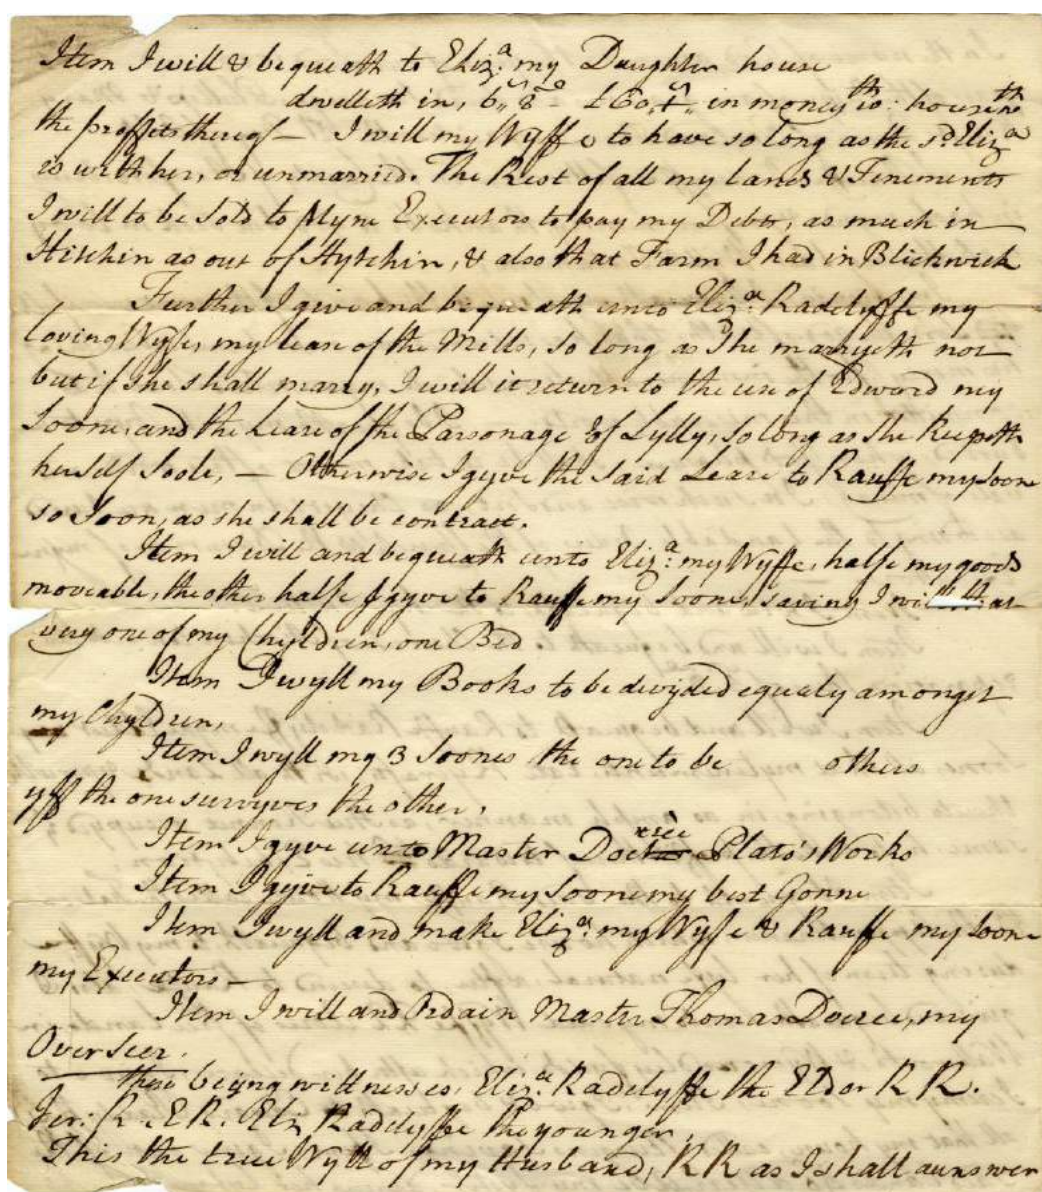 Item I will & bequeath to Eliz.a my Daughter house
dwelleth in, in money house
the proffets thereof — I will my Wyffe to have so long as the sd. Eliza
is with her, or unmarried. The Rest of all my lands & Tenements
I will to be Sold to Myne Executors to pay my Debts, as much in
Hitchin as out of Hytchin, & also that Farm I had in Blickwick
Further I give and bequeath unto Eliz.a Radclyffe my
loving Wyfe, my lease of the Mills, so long as She marryeth not
but if she shall marry, I will it return to the use of Edward my
Soone, and the Lease of the Parsonage of Lylly, so long as she Keepeth
herself Soole, — Otherwise I gyve the said Lease to Rauffe my Soone
so Soon, as she shall be contract.
Item I will and bequeath unto Eliz.a my Wyffe, halfe my goods
moveable, the other halfe I gyve to Rauffe my Soone, saving I will that
very one of my Chyldren, one Bed
Item I wyll my Books to be devyded equaly amongst
my Chyldren,
Item I wyll my 3 Soones the one to be others
yff the one survyves the other.
Item I gyve unto Master Plato's Works
Item I gyive to Rauffe my Soone my best Gonne
Item I wyll and make Eliz.a my Wyfe & Rauffe my Soone
my Executors —
Item I will and Ordain Master Thomas Docree, my
Over Seer.
these beyng wittnesses, Eliz.a Radclyffe the Eldor R R.
Jer: R. E R. Eliz Radclyffe the younger,
This the true Wyll of my Husband, R R as I shall aunswer